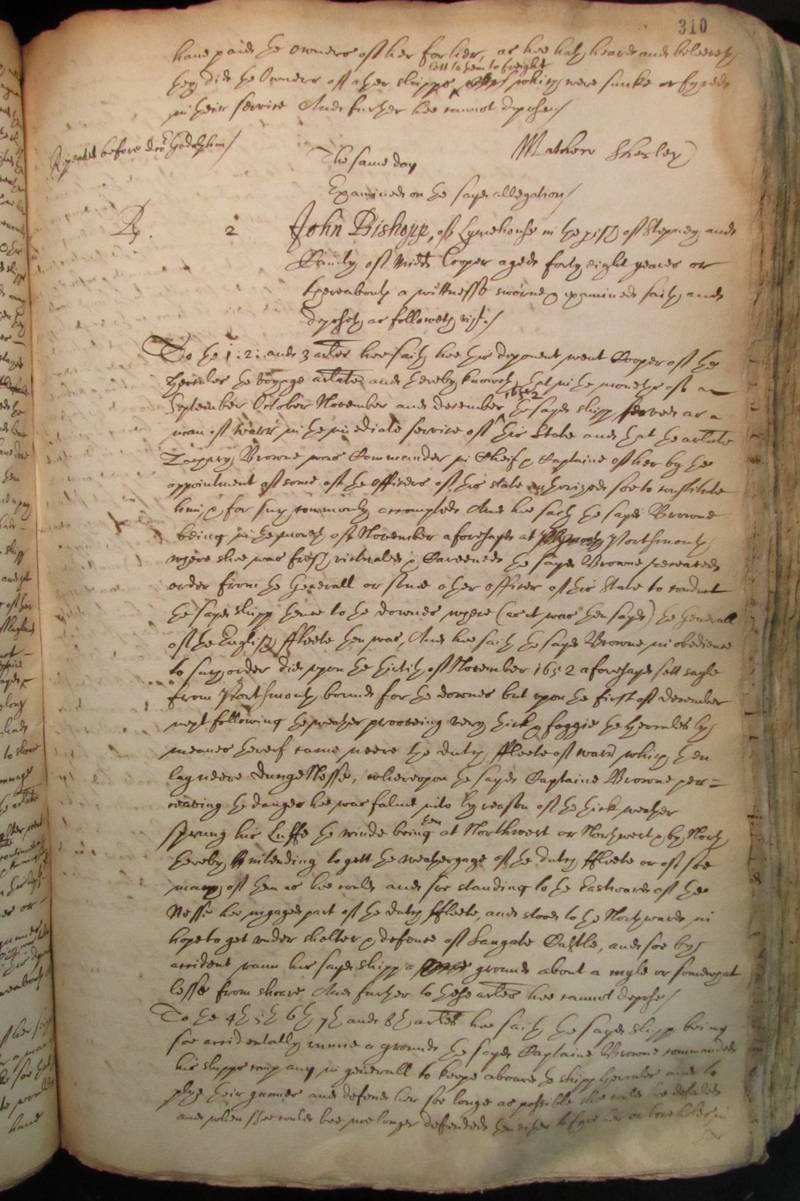 310
have paid the owners of her for her, as hee hath heard and beleeveth
they did the Owners of other shipps lett to them to freight which were sunke or fyred
in their service And further hee cannot depose./
Repeated before doctor Godolphin/
Mathew Sherley
The same day
Examined on the sayd allegation/
Ry. 2 John Bishopp, of Lymehouse in the parish of Stepney and
County of Midd Cooper aged forty eight yeares or
thereabouts a wittnesse sworne & examined saith and
deposeth as followeth vizt./
To the 1. 2. and 3 artles hee saith hee this deponent went Cooper of the
Hercules the voyage arlate and thereby knoweth that in the moneths of
September October November and december 1652 the sayd shipp served as a
man of warr in the imediate service of this State and that the arlate
Zachary Browne was Commander in Cheife & Captaine of her by the
appointment of some of the officers of this state authorized soe to constitute
him & for such commonly accompted And hee saith the sayd Browne
being in the moneth of November aforesayd at Portsmouth
where shee was fresh victualed & Careened the sayd Browne receaved
order from the Generall or some other officer of this State to conduct
the sayd shipp thence to the downes where (as it was then sayd) the Generall
of the English ffleete then was, And hee saith the sayd Browne in obedience
to such order did upon the thirtith of November 1652 aforesayd sett sayle
from Portsmouth bound for the downes but upon the first of december
next following the weather prooveing very thick & foggie the Hercules by
meanes thereof came neere the dutch ffleete of warr which then
lay neere Dunge Nesse, whereupon the sayd Captaine Browne per=
ceaving the danger hee was falne into by reason of the thick weather
sprang his Luffe the winde being then at Northwest or Northwest & by North
thereby intending to gett the weathergage of the dutch ffleete or of soe
many of them as hee could and soe standing to the Eastward of the
Nesse hee ingaged part of the dutch ffleete, and stood to the Northward in
hope to get under shelter & defence of Sangate Castle, and soe by
accident rann his sayd shipp a ground about a myle or somewhat
lesse from shoare And further to these artles hee cannot depose/
To the 4th 5th 6th 7th and 8th artles hee saith the sayd shipp being
soe accidentally runne a ground the sayd Captaine Browne commanded
his shipps company in generall to keepe aboard the shipp Hercules and to
plye their gunnes and defend her soe longe as possible she could be defended
and when shee could bee noe longer defended